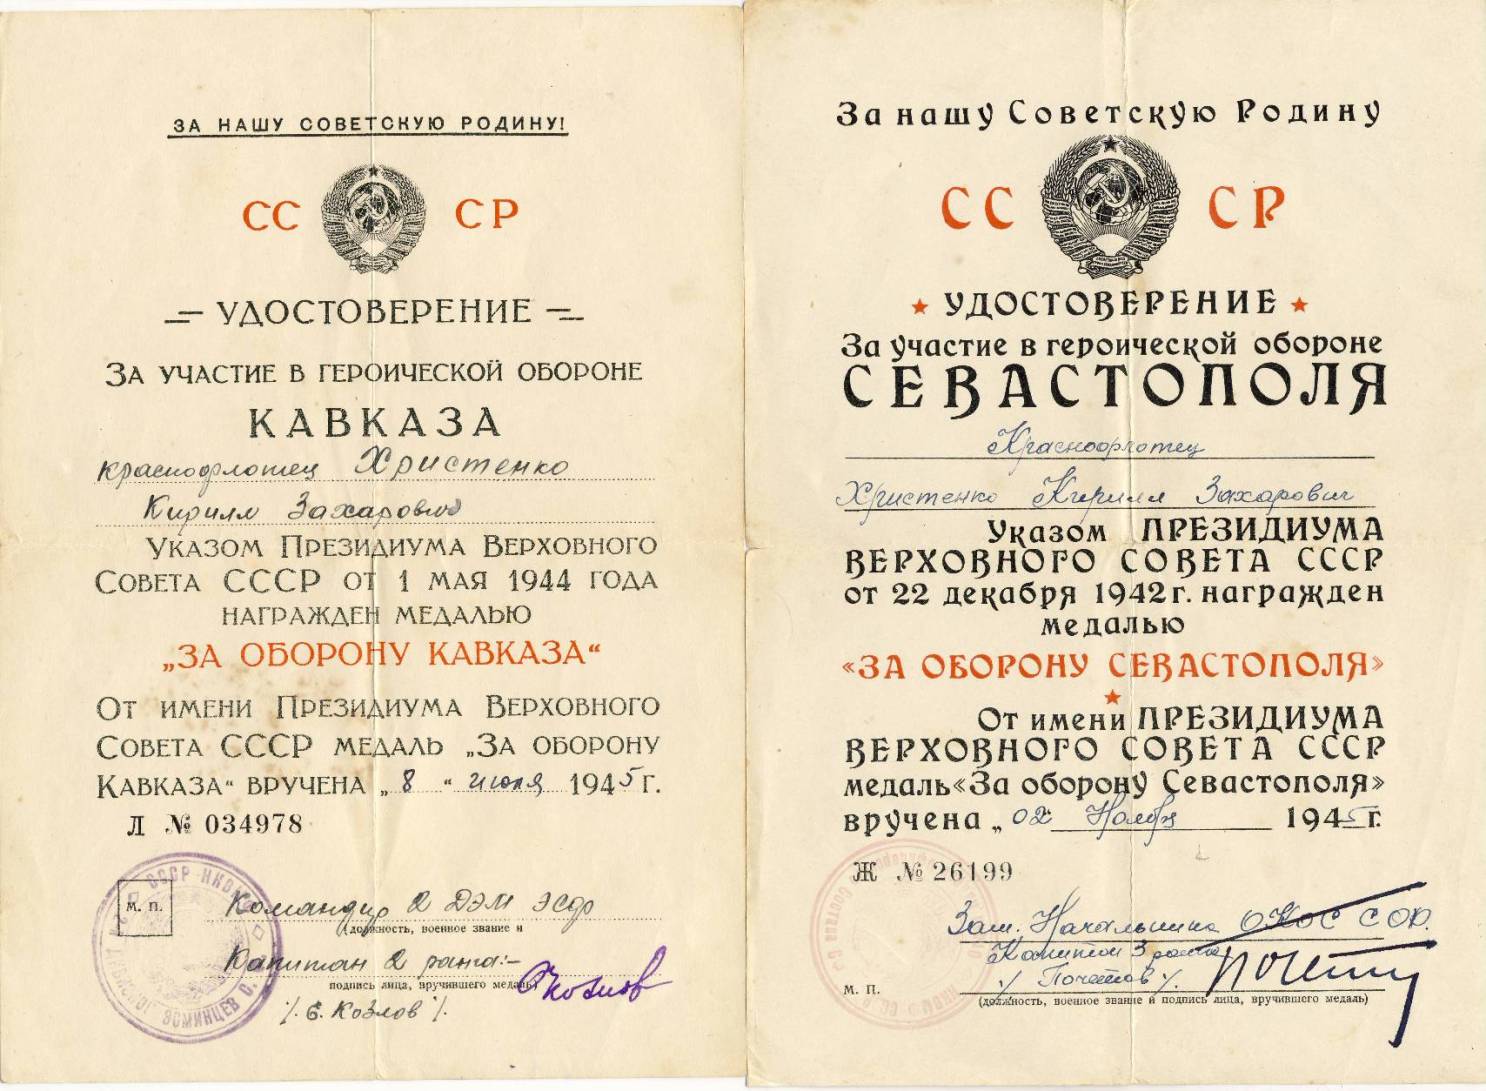 ЗА НАШУ СОВЕТСКУЮ РОДИНУ!
СС СР
УДОСТОВЕРЕНИЕ
ЗА УЧАСТИЕ В ГЕРОИЧЕСКОЙ ОБОРОНЕ
КАВКАЗА
краснофлотец Христенко
Кирилл Захарович
УКАЗОМ ПРЕЗИДИУМА ВЕРХОВНОГО
СОВЕТА СССР ОТ 1 МАЯ 1944 ГОДА
НАГРАЖДЕН МЕДАЛЬЮ
„ЗА ОБОРОНУ КАВКАЗА“
ОТ ИМЕНИ ПРЕЗИДИУМА ВЕРХОВНОГО
СОВЕТА СССР МЕДАЛЬ „ЗА ОБОРОНУ
КАВКАЗА“ ВРУЧЕНА „8“ июля 1945 г.
Л № 034978
СССР НКВМФ
ЭСМИНЦЕВ
м. п.
Командир 2 ДЭМ эсчф
(должность, военное звание и
Капитан 2 ранга:-
подпись лица, вручившего медаль)
Козлов
/. С. Козлов /.
За нашу Советскую Родину
СС СР
УДОСТОВЕРЕНИЕ
За участие в героической обороне
СЕВАСТОПОЛЯ
Краснофлотец
Христенко Кирилл Захарович
Указом ПРЕЗИДИУМА
ВЕРХОВНОГО СОВЕТА СССР
от 22 декабря 1942 г. награжден
медалью
«ЗА ОБОРОНУ СЕВАСТОПОЛЯ»
От имени ПРЕЗИДИУМА
ВЕРХОВНОГО СОВЕТА СССР
медаль «За оборону Севастополя»
вручена „02 Ноября 1945 г.
Ж № 26199
Зам. Начальника ОКОС СОР.
Капитан 3 ранга
/. Почетов /.
м. п.
(должность, военное звание и подпись лица, вручившего медаль)